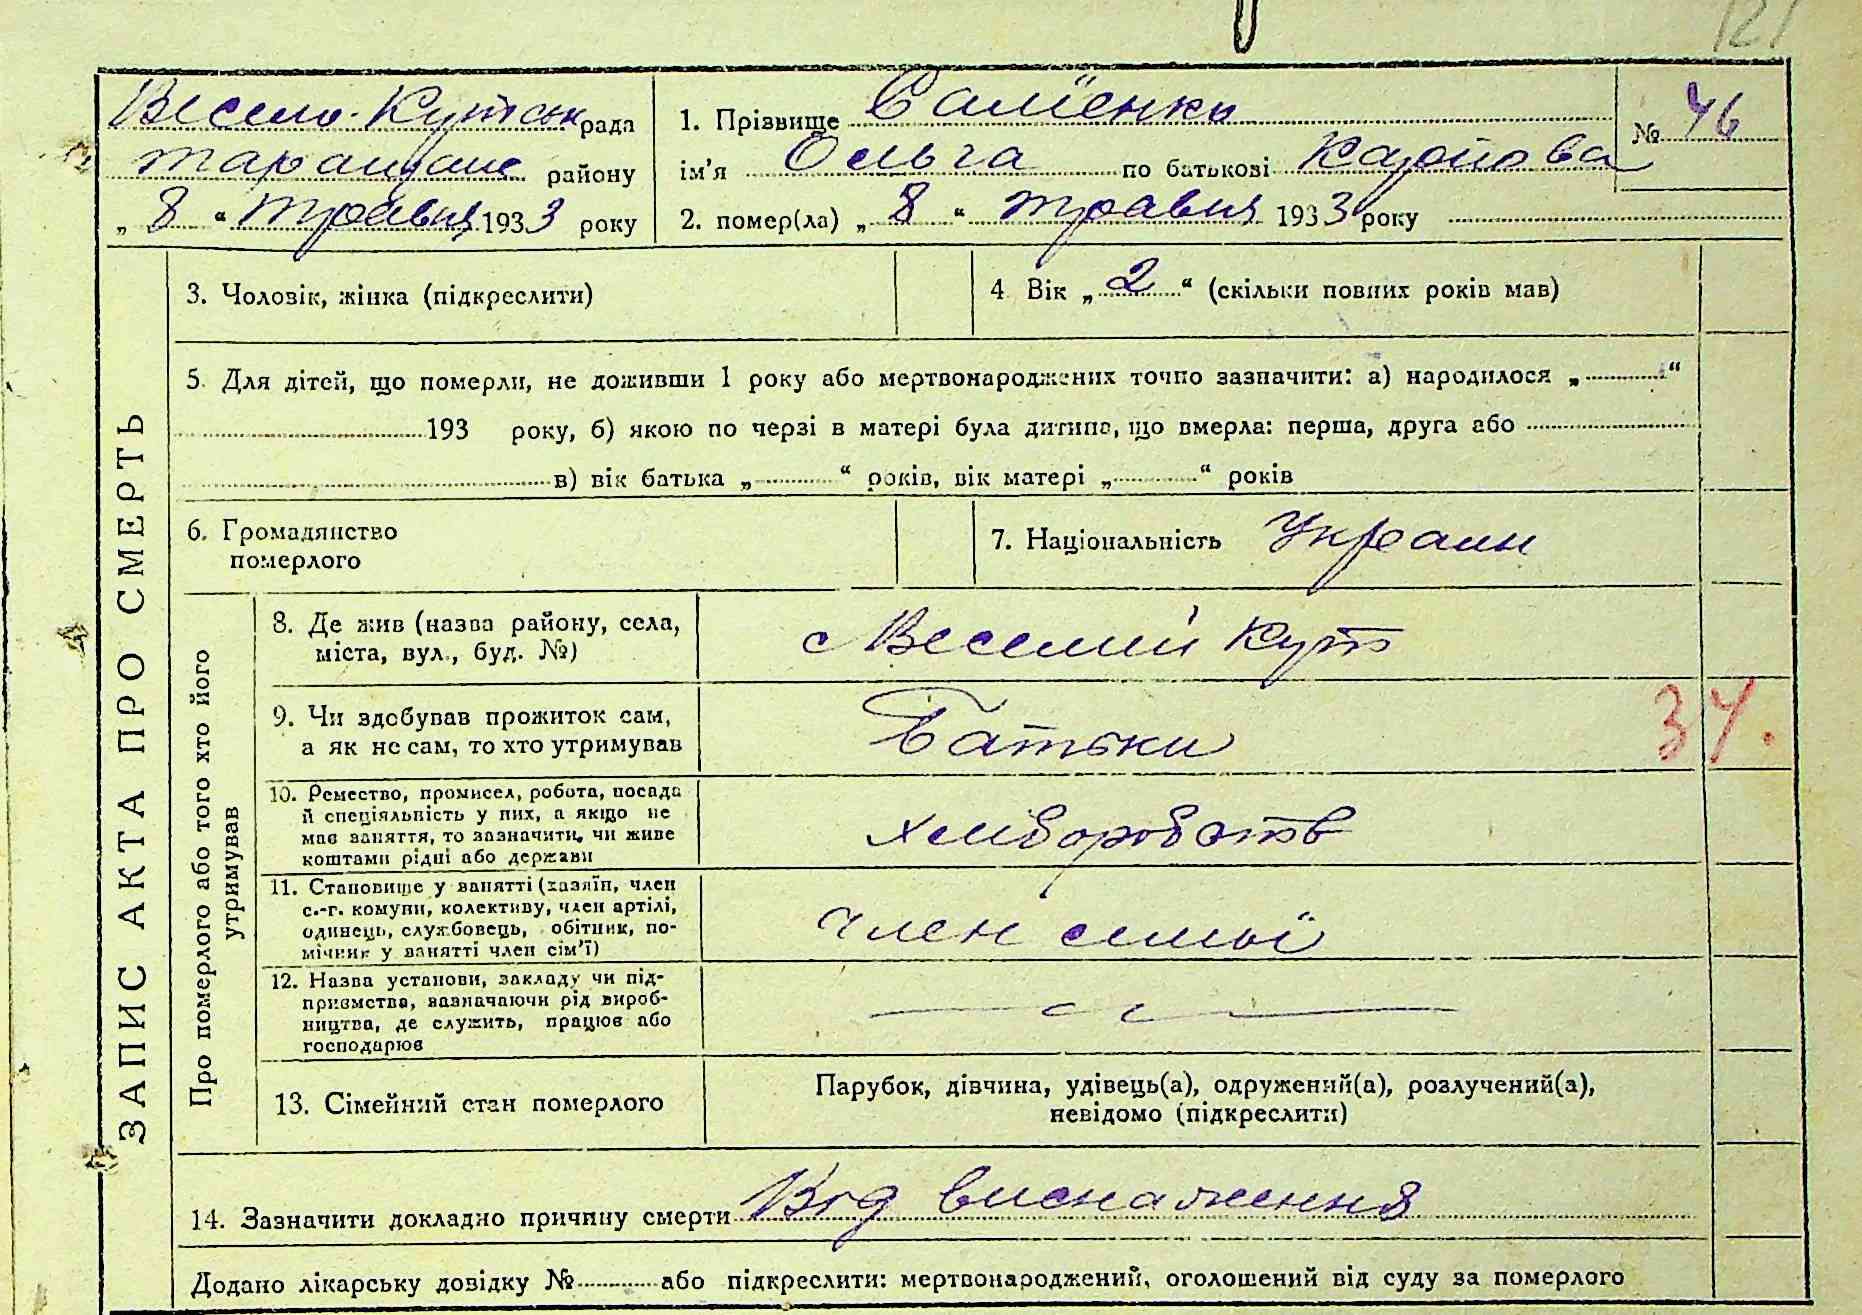 121
Весело-Кутськ рада
Таращане району
„ 8 “ травня 1933 року
1. Прізвище Салієнко
№ 46
ім'я Ольга по батькові Карпова
2. помер(ла) „ 8 “ травня 1933 року
3. Чоловік, жінка (підкреслити)
4 Вік „ 2 “ (скільки повних років мав)
5. Для дітей, що померли, не доживши 1 року або мертвонароджених точно зазначити: а) народилося „ “
193 року, б) якою по черзі в матері була дитина, що вмерла: перша, друга або
в) вік батька „ “ років, вік матері „ “ років
6. Громадянство
померлого
7. Національність Украин
ЗАПИС АКТА ПРО СМЕРТЬ
Про померлого або того хто його
утримував
8. Де жив (назва району, села,
міста, вул., буд. №)
с Веселий Кут
9. Чи здобував прожиток сам,
а як не сам, то хто утримував
Батьки
34.
10. Ремество, промисел, робота, посада
й спеціяльність у них, а якщо не
має заняття, то зазначити, чи живе
коштами рідні або держави
хліборобств
11. Становище у занятті (хазяїн, член
с.-г. комуни, колективу, член артілі,
одинець, службовець, обітник, по-
мічник у занятті член сім'ї)
член семьї
12. Назва установи, закладу чи під-
приємства, зазначаючи рід вироб-
ництва, де служить, працює або
господарює
13. Сімейний стан померлого
Парубок, дівчина, удівець(а), одружений(а), розлучений(а),
невідомо (підкреслити)
14. Зазначити докладно причину смерти Від виснаження
Додано лікарську довідку № або підкреслити: мертвонароджений, оголошений від суду за померлого